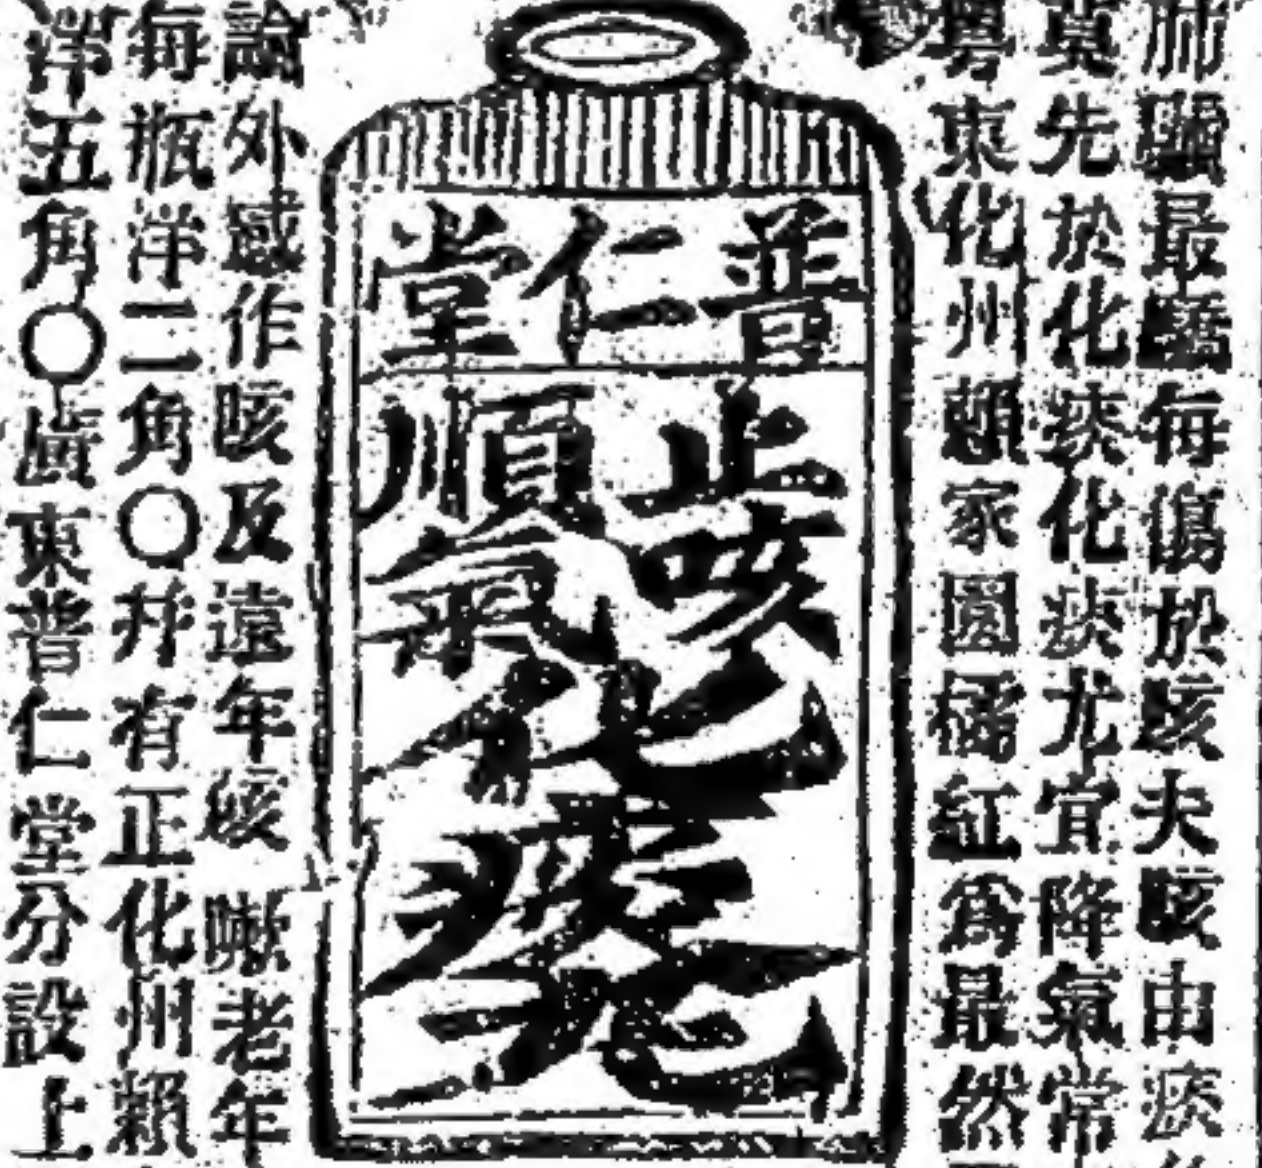 肺臟最驕每傷於咳夫咳由痰
貴先於化痰化痰尤宜降氣常
粵東化州賴家園橘紅為最然
普仁堂
止咳
順氣
化痰
論外感作咳及遠年咳嗽老年
每瓶洋二角〇并有正化州賴
洋五角〇廣東普仁堂分設上